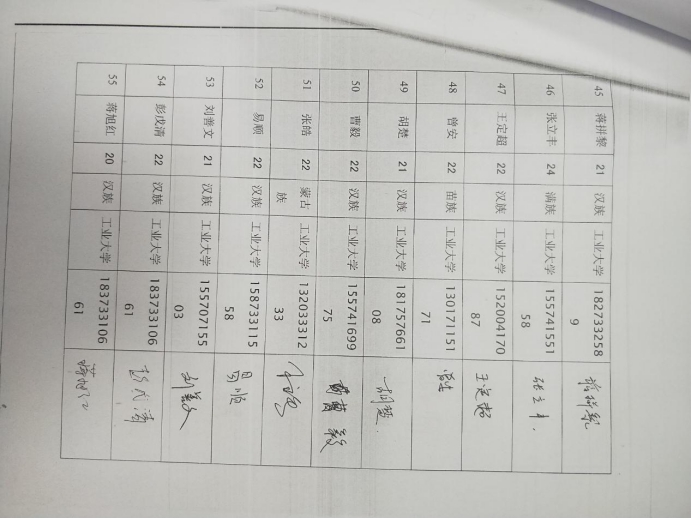 45 蒋拼黎 21 汉族 工业大学 182733258
9 蒋拼黎
46 张立丰 24 满族 工业大学 155741551
58 张立丰.
47 王定超 22 汉族 工业大学 152004170
87 王定超
48 曾安 22 苗族 工业大学 130171151
71 曾安
49 胡楚 21 汉族 工业大学 181757661
08 胡楚.
50 曹毅 22 汉族 工业大学 155741699
75 毅
51 张皓 22 蒙古 工业大学 132033312
族 33
52 易顺 22 汉族 工业大学 158733115
58 易顺
53 刘善文 21 汉族 工业大学 155707155
03 刘善文
54 彭戊清 22 汉族 工业大学 183733106
61 彭戊清
55 蒋旭红 20 汉族 工业大学 183733106
61 蒋旭红